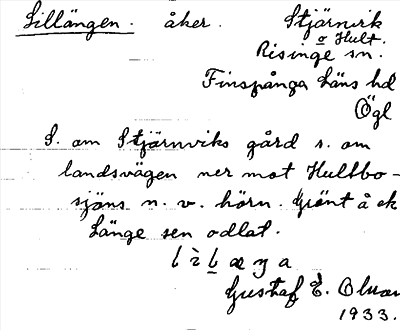 Lillängen. åker. Stjärnvik
o Hult.
Risinge sn.
Finspånga läns hd
Ögl
S. om Stjärnviks gård s. om
landsvägen ner mot Hultbo-
sjöns n. v. hörn. Grönt å ek
Länge sen odlat.
Gustaf E.
1933.